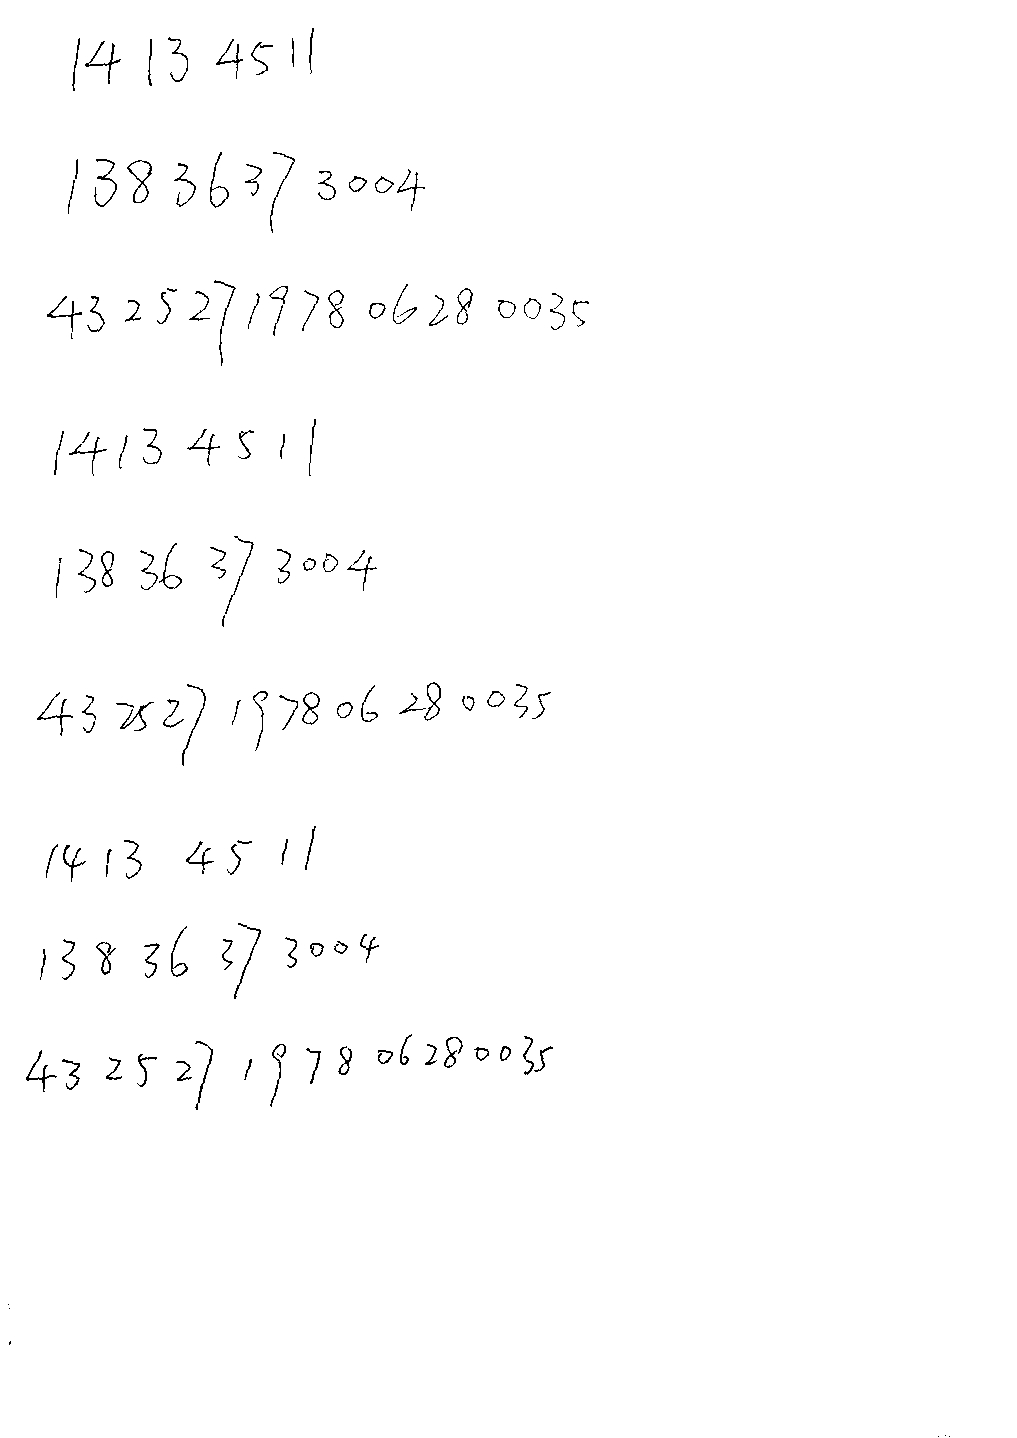 14 13 4511
138 36 37 3004
43 25 27 1978 06 28 0035
1413 4511
138 36 37 3004
43 25 27 1978 06 28 0035
1413 45 11
138 36 37 3004
43 25 27 1978 06280035